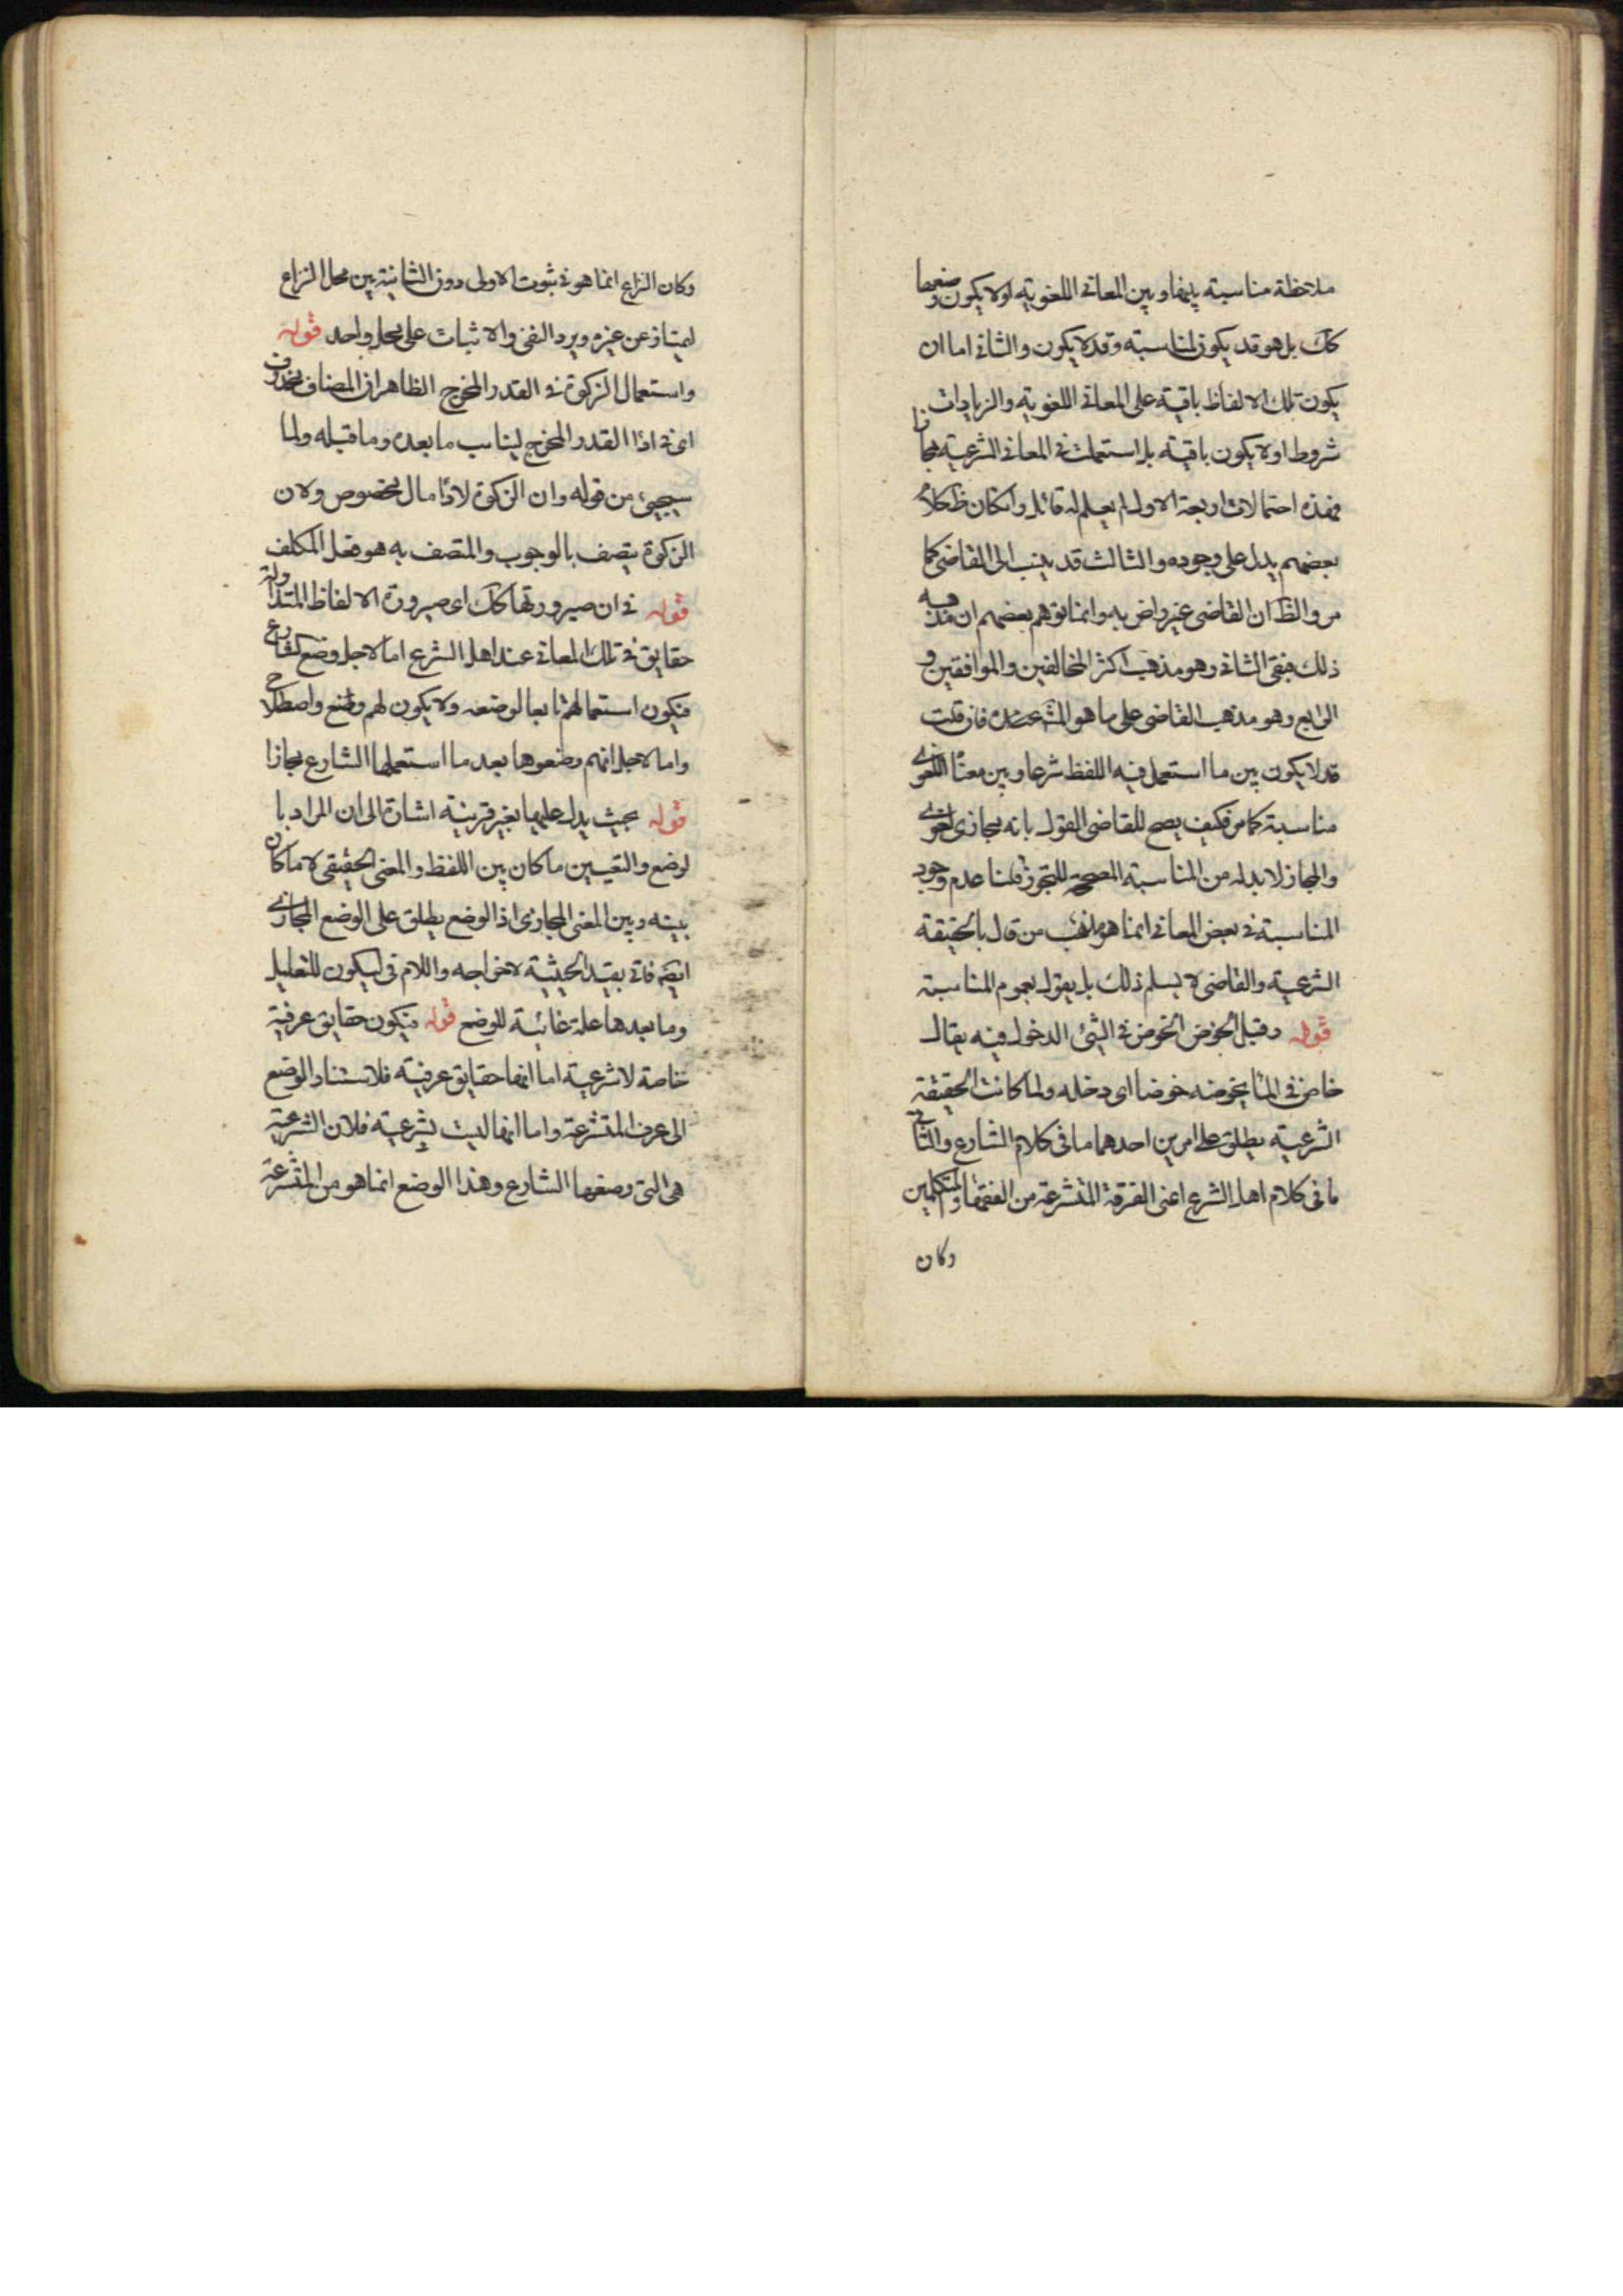 ملاحظة مناسبته بينها وبين المعانى اللغوية اولا يكون وضعها
كك بل هو قد يكون لمناسبته وقد لا يكون والثانى اما ان
يكون تلك الالفاظ باقية على المعانى اللغوية والزيادات
شروط اولا يكون باقية بل استعملت فى المعانى الشرعية مجازا
فهذه احتمالات اربعة الاول لم يعلم له قائل وان كان ظ كلام
بعضهم يدل على وجوده والثالث قد ينسب الى القاضى كما
مر والظ ان القاضى غير راض به وانما توهم بعضهم ان مذهبه
ذلك فبقى الثانى وهو مذهب اكثر المخالفين والموافقين و
الرابع وهو مذهب القاضى على ما هو المش عنده فان قلت
قد لا يكون بين ما استعمل فيه اللفظ شرعا وبين معناه اللغوى
مناسبة كما مر فكيف يصح للقاضى القول بانه مجازى لغوى
والمجاز لا بد له من المناسبته المصححه للتجوز قلنا عدم وجود
المناسبة فى بعض المعانى انما هو مذهب من قال بالحقيقة
الشرعية والقاضى لا يسلم ذلك بل يقول بعموم المناسبة
قوله وقبل الخوض الخوض فى الشئ الدخول فيه يقال
خاض فى الما يخوضه خوضا اى دخله ولما كانت الحقيقة
الشرعية يطلق على امرين احدهما ما فى كلام الشارع والثانى
ما فى كلام اهل الشرع اعنى الفرقة المتشرعة من الفقهاء والمتكلمين
وكان
وكان النزاع انما هو فى ثبوت الاولى دون الثانية بين محل النزاع
ليمتاز عن غيره ويرد النفى والاثبات على محل واحد قوله
واستعمال الزكوة فى القدر المخرج الظاهر ان المضاف محذوف
اى فى اداا القدر المخرج ليناسب ما بعده وما قبله ولما
سيجيئ من قوله وان الزكوة لاداا مال مخصوص ولان
الزكوة يتصف بالوجوب والمتصف به هو فعل المكلف
قوله فى ان صيرورتها كك اى صيرورة الالفاظ المتداولة
حقايق فى تلك المعانى عند اهل الشرع اما لاجل وضع الشارع
فيكون استعمالهم تابعا لوضعه ولا يكون لهم وضع واصطلاح
واما لاجل انهم وضعوها بعد ما استعملها الشارع مجازا
قوله بحيث يدل عليها بغير قرينة اشارة الى ان المراد با
لوضع والتعيين ما كان بين اللفظ والمعنى الحقيقى لا ما كان
بينه وبين المعنى المجازى اذ الوضع يطلق على الوضع المجازى
ايضا فاتى بقيد الحيثية لاخراجه واللام فى ليكون للتعليل
وما بعدها علة غائية للوضع قوله فيكون حقايق عرفية
خاصة لا شرعية اما انها حقايق عرفية فلاستناد الوضع
الى عرف المتشرعة واما انها ليست بشرعية فلان الشرعية
هى التى وضعها الشارع وهذا الوضع انما هو من المتشرعة